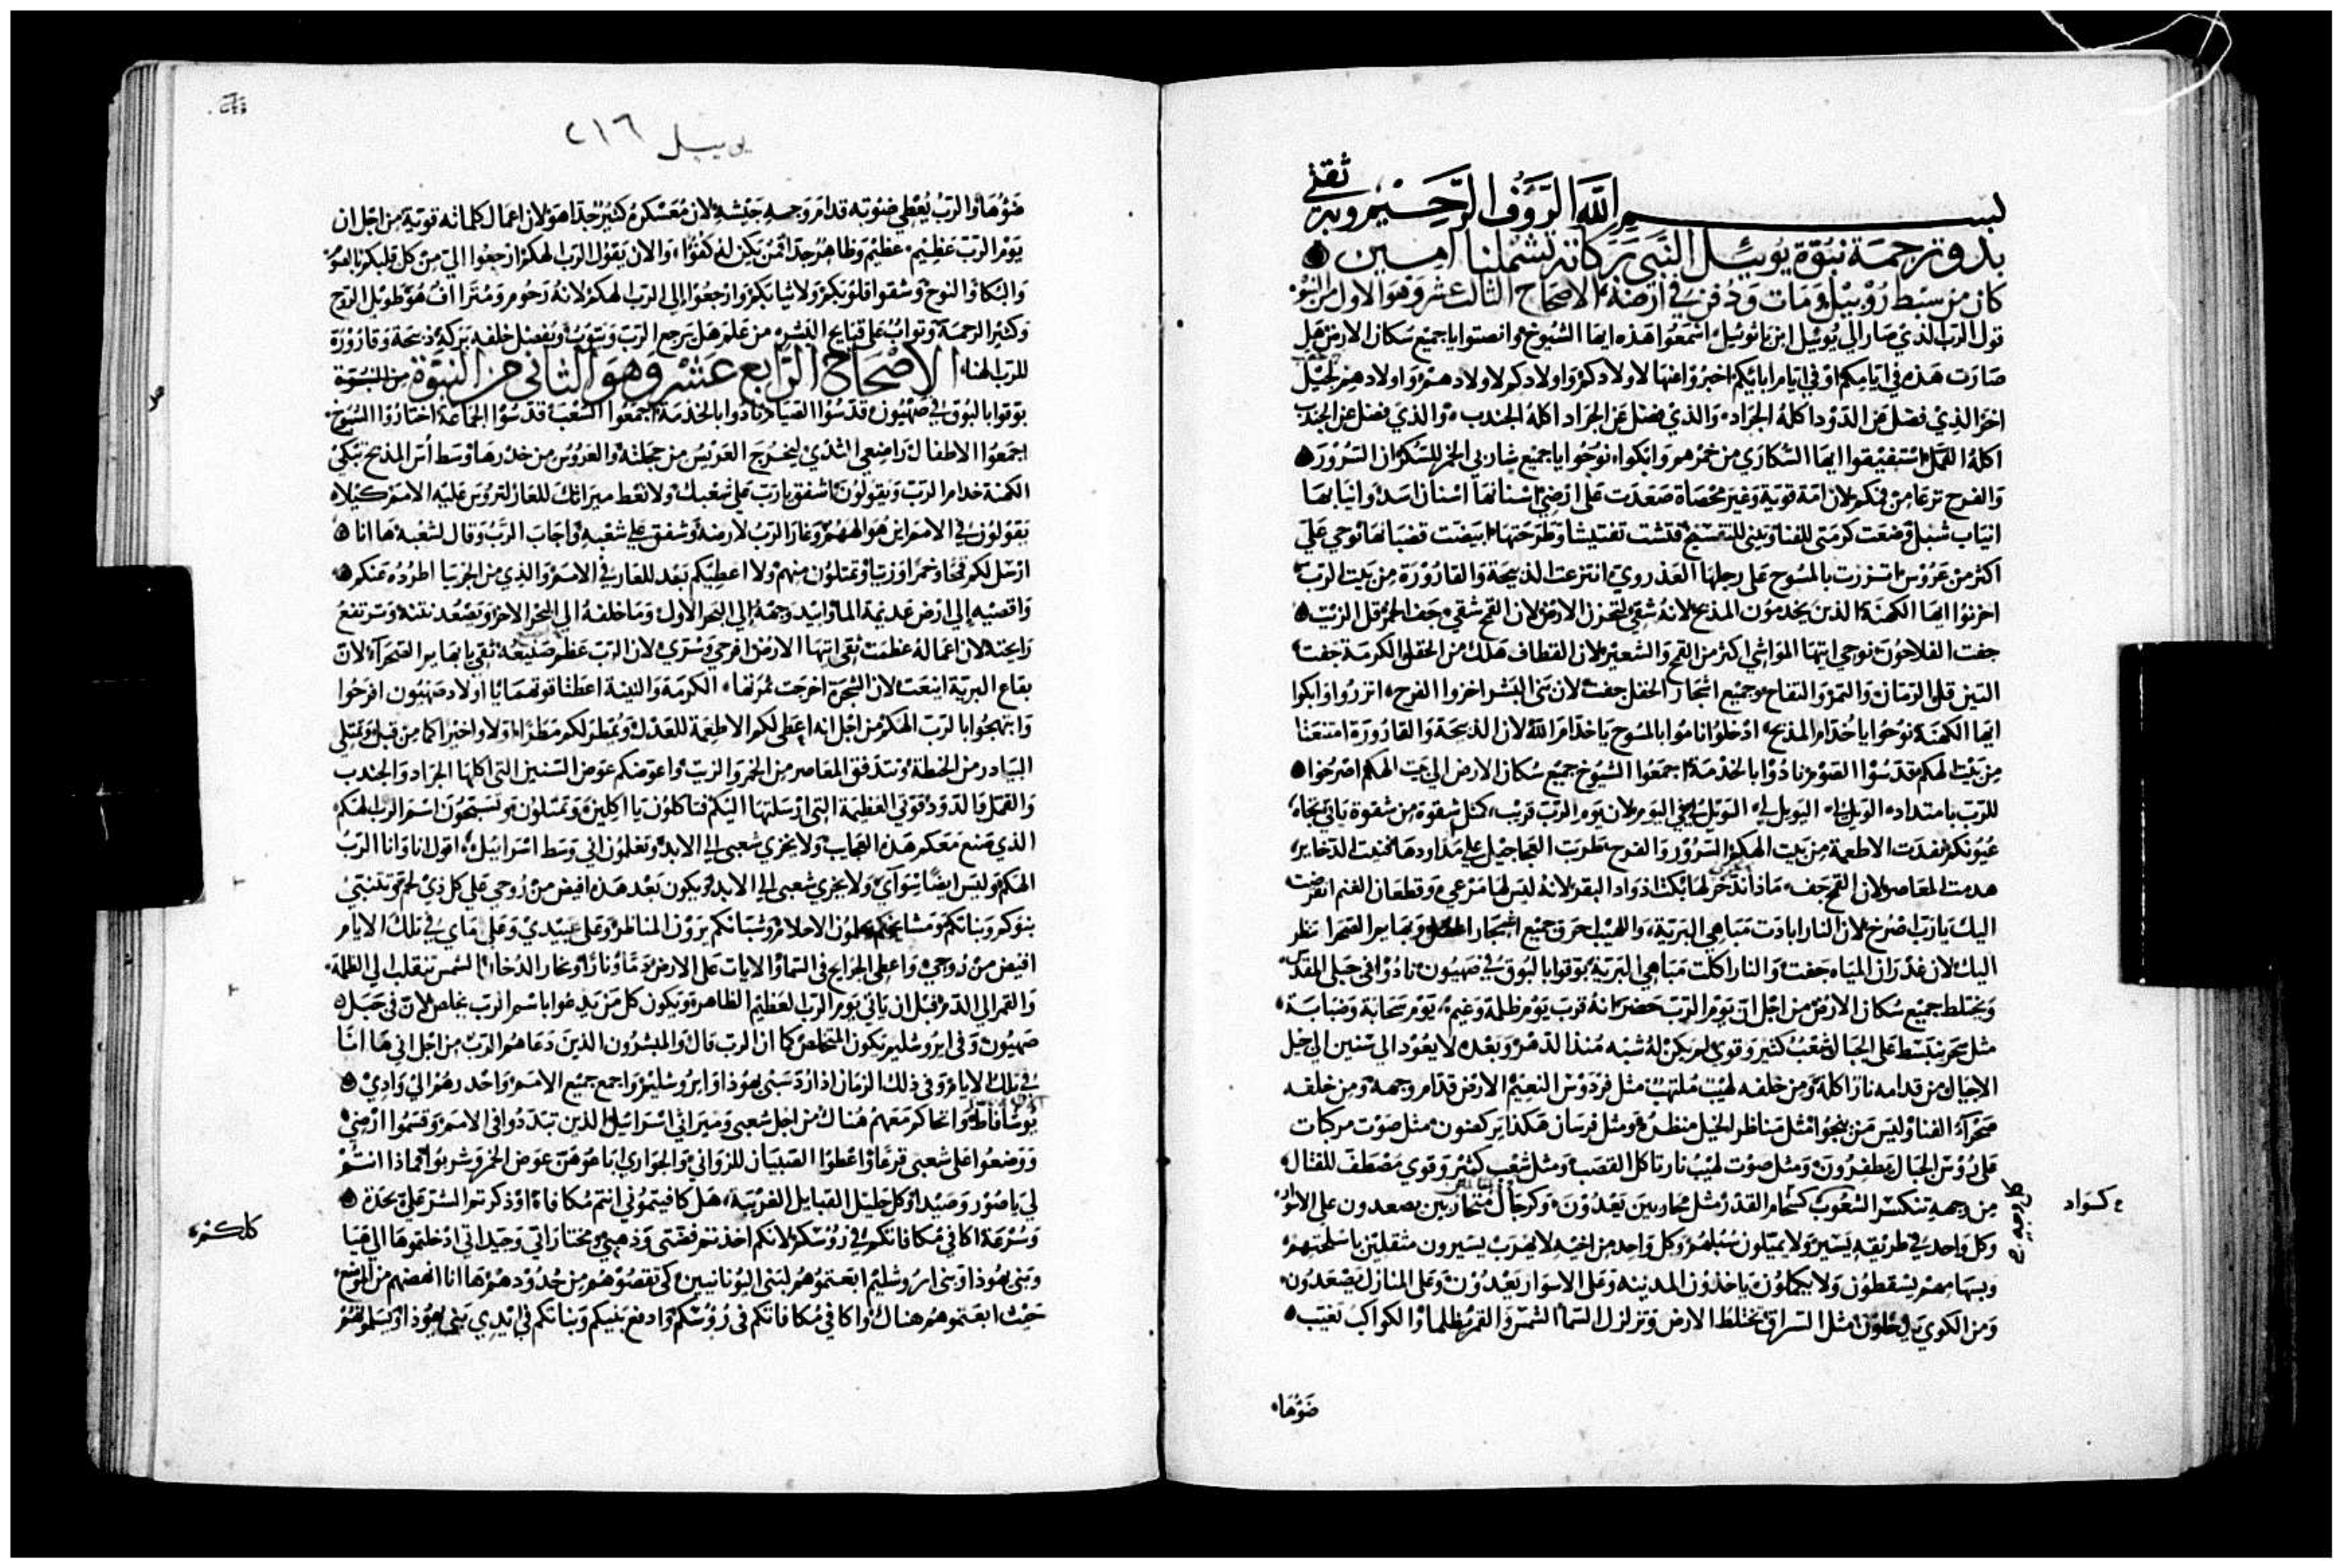 بسم الله الرؤف الرحيم وبه ثقتي
بدو ترجمة نبوة يوييل النبي بركاته تشملنا امين
كان من سبط روبيل ومات ودفن في ارضه الاصحاح الثالث عشر وهو الاول من النبوه
قول الرب الذي صار الي يوييل ابن باثوئيل اسمعوا هذه ايها الشيوخ وانصتوا يا جميع سكان الارض هل
صارت هذه في ايامكم او في ايام ابايكم اخبروا عنها لاولادكم واولادكم لاولادهم واولادهم لجيل
اخر الذي فضل عن الدود اكله الجراد والذي فضل عن الجراد اكله الجندب والذي فضل عن الجندب
اكله القمل استفيقوا ايها السكاري من خمرهم وابكوا نوحوا يا جميع شاربي الخمر للسكر ان السرور
والفرح نزعا من فمكم لان امة قوية وغير محصاة صعدت علي ارضي اسنانها اسنان اسد وانيابها
انياب شبل وضعت كرمتي للفنا وتيني للتفسيخ فتشت تفتيشا وطرحتها ابيضت قضبانها نوحي علي
اكثر من عروس اتزرت بالمسوح علي رجلها العذروي انتزعت الذبيحة والقارورة من بيت الرب
احزنوا ايها الكهنة الذين يخدمون المذبح لانه شقي لتحزن الارض لان القمح شقي جف الخمر قل الزيت
جفت الفلاحون نوحي ايتها المواشي اكثر من القمح والشعير لان القطاف هلك من الحقل والكرمة جفت
التين قل الرمان والتمر والتفاح وجميع اشجار الحقل جفت لان بني البشر اخزوا الفرح اتزروا وابكوا
ايها الكهنة نوحوا يا خدام المذبح ادخلوا ناموا بالمسوح يا خدام الله لان الذبيحة والقارورة امتنعتا
من بيت الهكم قدسوا الصوم نادوا بالخدمة اجمعوا الشيوخ جميع سكان الارض الي بيت الهكم اصرخوا
للرب بامتداد الويل لي الويل لي الويل لي في اليوم لان يوم الرب قريب كمثل شقوة من شقوة ياتي تجاه
عيونكم نفدت الاطعمة من بيت الهكم السرور والفرح طربت العجاجيل علي مداودها فنيت الدخاير
هدمت المعاصر لان القمح جف ماذا ندخر لها بكت اذواد البقر لانه ليس لها مرعي وقطعان الغنم انقرضت
اليك يا رب اصرخ لان النار ابادت مباهي البرية واللهيب احرق جميع اشجار الحقل وبهايم الصحرا نظر
اليك لان غدران المياه جفت والنار اكلت مباهي البرية بوقوا بالبوق في صهيون نادوا في جبلي المقدس
ويختلط جميع سكان الارض من اجل ان يوم الرب حضر انه قرب يوم ظلمة وغيم يوم سحابة وضبابة
مثل سحر ينبسط علي الجبال شعب كثير وقوي لم يكن له شبه منذ الدهر وبعده لا يعود الي سنين الي جيل
الاجيال من قدامه نار اكلة ومن خلفه لهيب ملتهب مثل فردوس النعيم الارض قدام وجهه ومن خلفه
صحراء الفنا وليس من ينجوا مثل مناظر الخيل منظره ومثل فرسان هكذا يركضون مثل صوت مركبات
علي رؤوس الجبال يطفرون ومثل صوت لهيب نار تاكل القصب ومثل شعب كثير وقوي مصطف للقتال
من وجهه تنكسر الشعوب كسخام القدر مثل محاربين يعدون وكرجال متحاربين يصعدون علي الاسوار
وكل واحد في طريقه يسير ولا يميلون سبلهم وكل واحد من اخيه لا يهرب يسيرون مثقلين باسلحتهم
وبسهامهم يسقطون ولا يكملون ياخذون المدينه وعلي الاسوار يعدون وعلي المنازل يصعدون
ومن الكوي يدخلون مثل السراق تختلط الارض وتزلزل السما الشمس والقمر يظلما والكواكب تغيب
ضوها
كسواد
يوييل ٢١٦
ضوها والرب يعطي صوته قدام وجه جيشه لان معسكره كثير جدا هو لان اعمال كلماته قوية من اجل ان
يوم الرب عظيم عظيم وظاهر جدا فمن يكن له كفوا والان يقول الرب الهكم ارجعوا الي من كل قلبكم بالصوم
والبكا والنوح وشقوا قلوبكم ولا ثيابكم وارجعوا الي الرب الهكم لانه رحوم ومتراأف هو طويل الروح
وكثير الرحمة وتواب علي قبايح البشر من علم هل يرجع الرب ويتوب ويفضل خلفه بركة ذبيحة وقارورة
للرب الهنا الاصحاح الرابع عشر وهو الثاني من النبوة من النبوة
بوقوا بالبوق في صهيون قدسوا الصيام نادوا بالخدمة اجمعوا الشعب قدسوا الجماعة اختاروا الشيوخ
اجمعوا الاطفال راضعي الثدي ليخرج العريس من حجلته والعروس من خدرها وسط أس المذبح تبكي
الكهنة خدام الرب ويقولون اشفق يا رب علي شعبك ولا تعط ميراثك للعار لتروس عليه الامم كيلا
يقولون في الامم اين هو الههم وغار الرب لارضه وشفق علي شعبه واجاب الرب وقال لشعبه ها انا
ارسل لكم قمحا وخمرا وزيتا وتمتلون منهم ولا اعطيكم بعد للعار في الامم والذي من الجربيا اطرده عنكم
واقصيه الي ارض عديمة الما وابيد وجهه الي البحر الاول وما خلفه الي البحر الاخر ويصعد نتنه وترتفع
رايحته لان اعماله عظمت ثقي ايتها الارض افرحي وسري لان الرب عظم صنيعه ثقي يا بهايم الصحراء لان
بقاع البرية اينعت لان الشجرة اخرجت ثمرتها الكرمة والتينة اعطتا قوتهما يا اولاد صهيون افرحوا
وابتهجوا بالرب الهكم من اجل انه اعطي لكم الاطعمة للعدل ويمطر لكم مطرا اولا واخيرا كما من قبل وتمتلي
البيادر من الحنطة وتتدفق المعاصر من الخمر والزيت واعوضكم عوض السنين التي اكلها الجراد والجندب
والقمل والدود قوتي العظيمة التي ارسلتها اليكم فتاكلون يا اكلين وتمتلون وتسبحون اسم الرب الهكم
الذي صنع معكم هذه العجايب ولا يخزي شعبي الي الابد وتعلمون اني وسط اسرائيل اقول انا وانا الرب
الهكم وليس ايضا سوآي ولا يخزي شعبي الي الابد ويكون بعد هذه افيض من روحي علي كل ذي لحم فتتنبي
بنوكم وبناتكم ومشايخكم يحلمون الاحلام وشبانكم يرون المناظر وعلي عبيدي وعلي اماي في تلك الايام
افيض من روحي واعطي الجرايح في السما والايات علي الارض دما ونارا وبخار الدخان الشمس تنقلب الي الظلمة
والقمر الي الدم قبل ان ياتي يوم الرب العظيم الظاهر ويكون كل من يدعوا باسم الرب يخلص لان في جبل
صهيون وفي ايروشليم يكون المتخلص كما ان الرب قال والمبشرون الذين دعاهم الرب من اجل اني ها انا
في تلك الايام وفي ذلك الزمان اذا رد سبي يهوذا وايروشليم واجمع جميع الامم واحدرهم الي وادي
يوشافاط واتحاكم معهم هناك من اجل شعبي وميراثي اسرائيل الذين تبددوا في الامم وقسموا ارضي
ووضعوا علي شعبي قرعا واعطوا الصبيان للزواني والجواري اباعوهن عوض الخمر وشربوا فماذا انتم
لي يا صور وصيدا وكل جليل القبايل الغريبة هل كافيتموني انتم مكافاة او ذكرتم السر علي بحدة
وسرعة اكافي مكافاتكم في رؤسكم لانكم اخذتم فضتي وذهبي ومختاراتي وجيداتي ادخلتموها الي هيا
وبني يهوذا وبني اروشليم ابعتموهم لبني اليونانيين كي تقصوهم من حدودهم ها انا انهضهم من الموضع
حيث ابعتموهم هناك واكافي مكافاتكم في رؤسكم وادفع بنيكم وبناتكم في ايدي بني يهوذا ويسلموهم